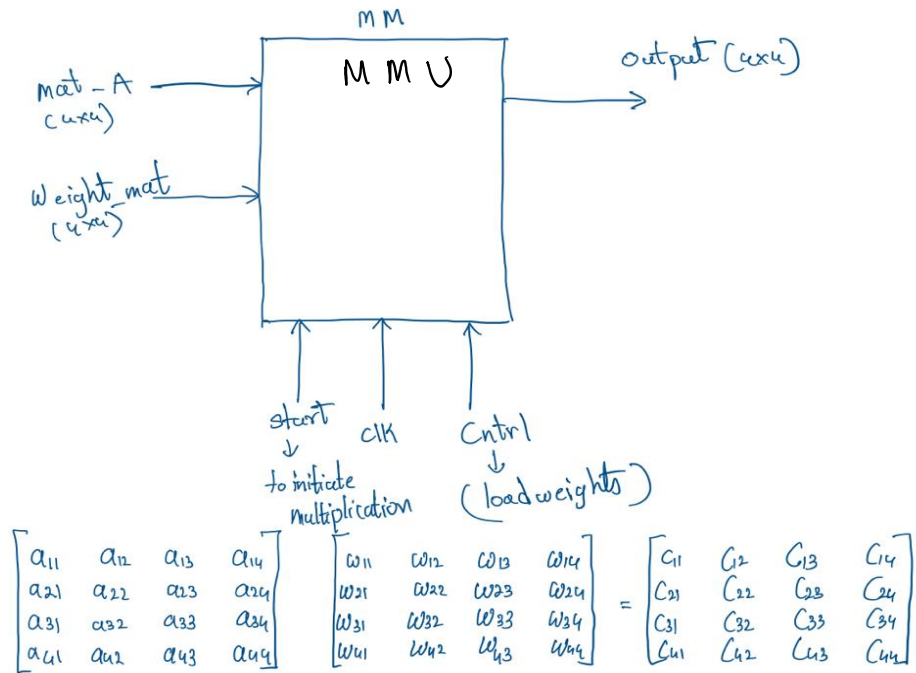 MM
MMU
mat_A
(4x4)
Weight_mat
(4x4)
output (4x4)
start
↓
to initiate
multiplication
clk
Cntrl
↓
(load weights)
a11 a12 a13 a14
a21 a22 a23 a24
a31 a32 a33 a34
a41 a42 a43 a44
w11 w12 w13 w14
w21 w22 w23 w24
w31 w32 w33 w34
w41 w42 w43 w44
=
C11 C12 C13 C14
C21 C22 C23 C24
C31 C32 C33 C34
C41 C42 C43 C44